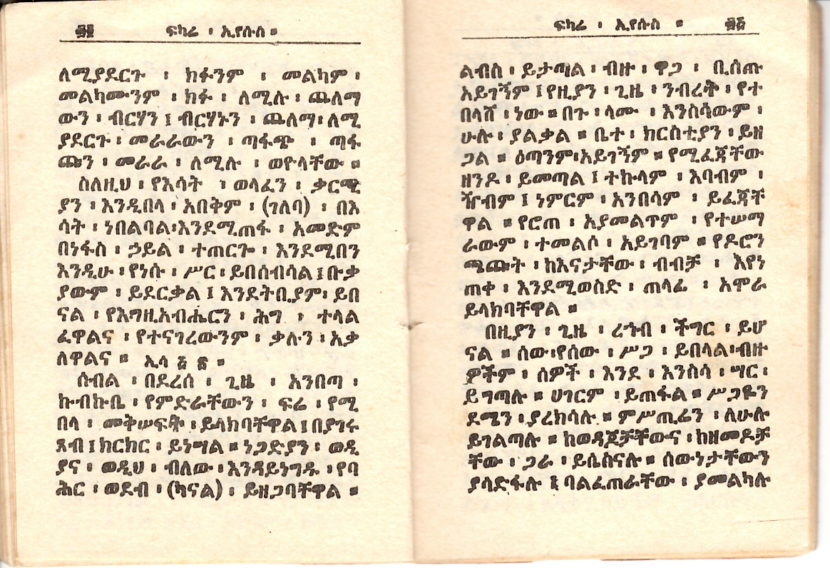 ፵፬ ፍካሬ ፡ ኢየሱስ ።
ለሚያደርጉ ፡ ክፉንም ፡ መልካም ፡
መልካሙንም ፡ ክፉ ፡ ለሚሉ ፡ ጨለማ
ውን ፡ ብርሃን ፤ ብርሃኑን ፡ ጨለማ ፡ ለሚ
ያደርጉ ፡ መራራውን ፡ ጣፋጭ ፡ ጣፋ
ጩን ፡ መራራ ፡ ለሚሉ ፡ ወዮላቸው ።
ስለዚህ ፡ የእሳት ፡ ወላፈን ፡ ቃርሚ
ያን ፡ እንዲበላ ፡ አበቅም ፡ (ገለባ) ፡ በእ
ሳት ፡ ነበልባል ፡ እንደሚጠፋ ፡ አመድም
በነፋስ ፡ ኃይል ፡ ተጠርጉ ፡ እንደሚበን
እንዲሁ ፡ የነሱ ፡ ሥር ፡ ይበሰብሳል ፤ ቡቃ
ያውም ፡ ይደርቃል ፤ እንደትቢያም ፡ ይበ
ናል ፡ የእግዚአብሔርን ፡ ሕግ ፡ ተላል
ፈዋልና ፡ የተናገረውንም ፡ ቃሉን ፡ አቃ
ለዋልና ። ኢሳ ፭ ፳ ።
ሰብል ፡ በደረሰ ፡ ጊዜ ፡ አንበጣ ፡
ኩብኩቤ ፡ የምድራቸውን ፡ ፍሬ ፡ የሚ
በላ ፡ መቅሠፍት ፡ ይላክባቸዋል ፤ በያገሩ
ጸብ ፤ ክርክር ፡ ይነግሣል ። ነጋድያን ፡ ወዲ
ያና ፡ ወዲህ ፡ ብለው ፡ እንዳይነግዱ ፡ የባ
ሕር ፡ ወደብ ፡ (ካናል) ፡ ይዘጋባቸዋል ።
ፍካሬ ፡ ኢየሱስ ። ፵፭
ልብስ ፡ ይታጣል ፡ ብዙ ፡ ዋጋ ፡ ቢሰጡ
አይገኝም ፤ የዚያን ፡ ጊዜ ፡ ንብረቅ ፡ የተ
በላሸ ፡ ነው ። በጉ ፡ ላሙ ፡ እንስሳውም ፡
ሁሉ ፡ ያልቃል ። ቤተ ፡ ክርስቲያን ፡ ይዘ
ጋል ። ዕጣንም ፡ አይገኝም ። የሚፈጃቸው
ዘንዶ ፡ ይመጣል ፤ ተኩላም ፡ እባብም ፡
ዥብም ፤ ነምርም ፡ አንበሳም ፡ ይፈጃቸ
ዋል ። የሮጠ ፡ አያመልጥም ፡ የተሠማ
ራውም ፡ ተመልሶ ፡ አይገባም ። የዶሮን
ጫጩት ፡ ከእናታቸው ፡ ብብቻ ፡ እየነ
ጠቀ ፡ እንደሚወስድ ፡ ጠላፊ ፡ አሞራ
ይላክባቸዋል ።
በዚያን ፡ ጊዜ ፡ ረኀብ ፡ ችግር ፡ ይሆ
ናል ። ሰው ፡ የሰው ፡ ሥጋ ፡ ይበላል ፡ ብዙ
ዎችም ፡ ሰዎች ፡ እንደ ፡ እንስሳ ፡ ሣር ፡
ይግጣሉ ። ሀገርም ፡ ይጠፋል ። ሥጋዬን
ደሜን ፡ ያረክሳሉ ። ምሥጢሬን ፡ ለሁሉ
ይገልጣሉ ። ከወዳጆቻቸውና ፡ ከዘመዶቻ
ቸው ፡ ጋራ ፡ ይሴስናሉ ። ሰውነታቸውን
ያሳድፋሉ ፤ ባልፈጠራቸው ፡ ያመልካሉ